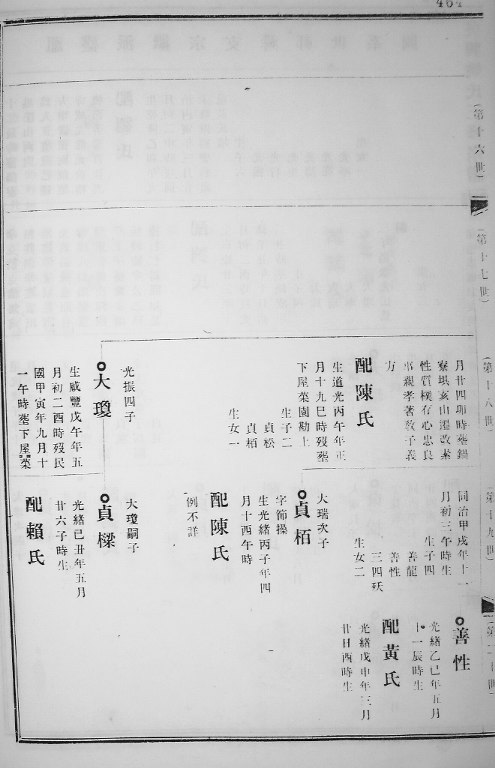 464
(第十六世)
(第十七世)
(第十八世)
月廿四卯時塟錫
寮垻亥山還改葬
性質樸存心忠良
事親孝著敎子義
方
配陳氏
生道光丙午年正
月十九巳時歿塟
下屋菜園勘上
生子二
貞松
貞栢
生女一
光振四子
大瓊
生咸豐戊午年五
月初二酉時歿民
國甲寅年九月十
一午時塟下屋菜
(第十九世)
同治甲戌年十一
月初三午時生
生子四
善龍
善性
三四殀
生女二
大瑞次子
貞栢
字節操
生光緒丙子年四
月十四午時
配陳氏
例不詳
大瓊嗣子
貞樑
光緒己丑年五月
廿六子時生
配賴氏
(第二十世)
善性
光緒乙巳年五月
十一辰時生
配黃氏
光緒戊申年三月
廿日酉時生